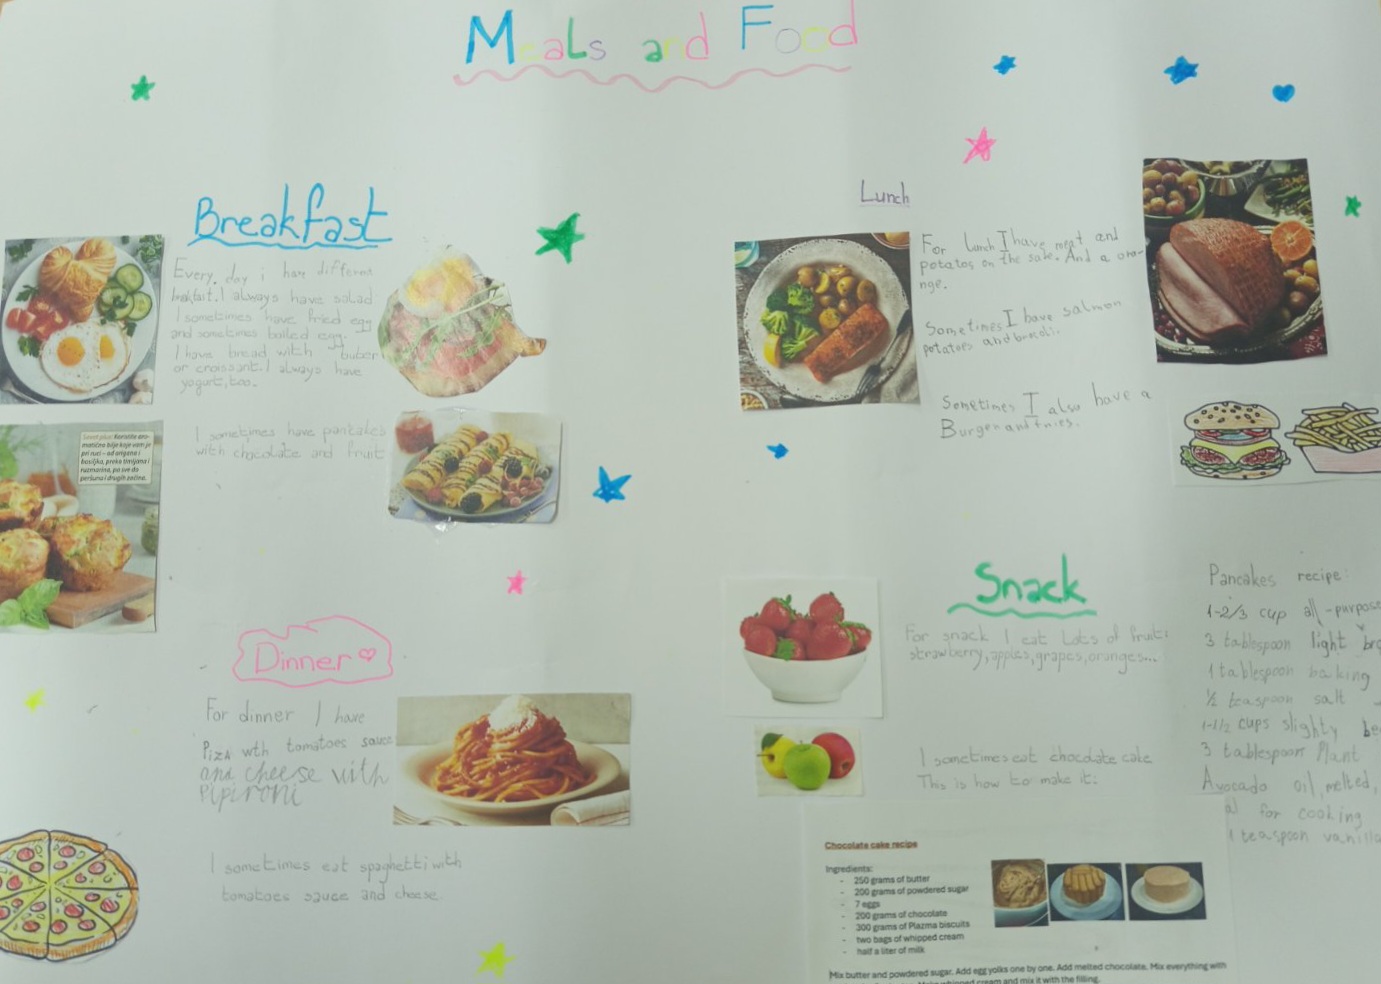 Meals and Food
Breakfast
Every day i have different
breakfast. I always have salad
I sometimes have fried egg
and sometimes boiled egg.
I have bread with buter
or croissant. I always have
yogurt, too.
I sometimes have pancakes
with chocolate and fruit
Savet plus! Koristite aro-
matično bilje koje vam je
pri ruci – od origana i
bosiljka, preko timijana i
ruzmarina, pa sve do
peršuna i drugih začina.
Dinner
For dinner I have
Pizza wth tomatoes sauce
and cheese with
Pipironi
I sometimes eat spaghetti with
tomatoes sauce and cheese
Lunch
For lunch I have meat and
potatos on the side. And a ora-
nge.
Sometimes I have salmon
potatoes and brocoli.
Sometimes I also have a
Burger and fries.
Snack
For snack I eat Lots of fruit:
strawberry, apples, grapes, oranges...
I sometimes eat chocolate cake
This is how to make it:
Chocolate cake recipe
Ingredients:
- 250 grams of butter
- 200 grams of powdered sugar
- 7 eggs
- 200 grams of chocolate
- 300 grams of Plazma biscuits
- two bags of whipped cream
- half a liter of milk
Mix butter and powdered sugar. Add egg yolks one by one. Add melted chocolate. Mix everything with
whipped cream and mix it with the filling.
Pancakes recipe:
1-2/3 cup all-purpose
3 tablespoon light bro
1 tablespoon baking
½ teaspoon salt
1-1/2 cups slighty be
3 tablespoon Plant
Avocado oil, melted,
for cooking
1 teaspoon vanilla